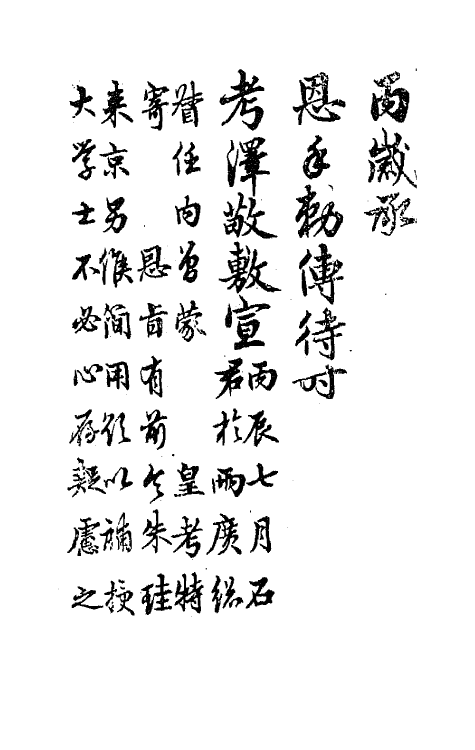 兩歲承
恩手勅傳待时
考澤敬敷宣丙辰七月石
君於兩廣總
督任内曾蒙 皇考特
寄 恩旨有前令朱珪
来京另候简用欲以補授
大学士不必心存疑慮之